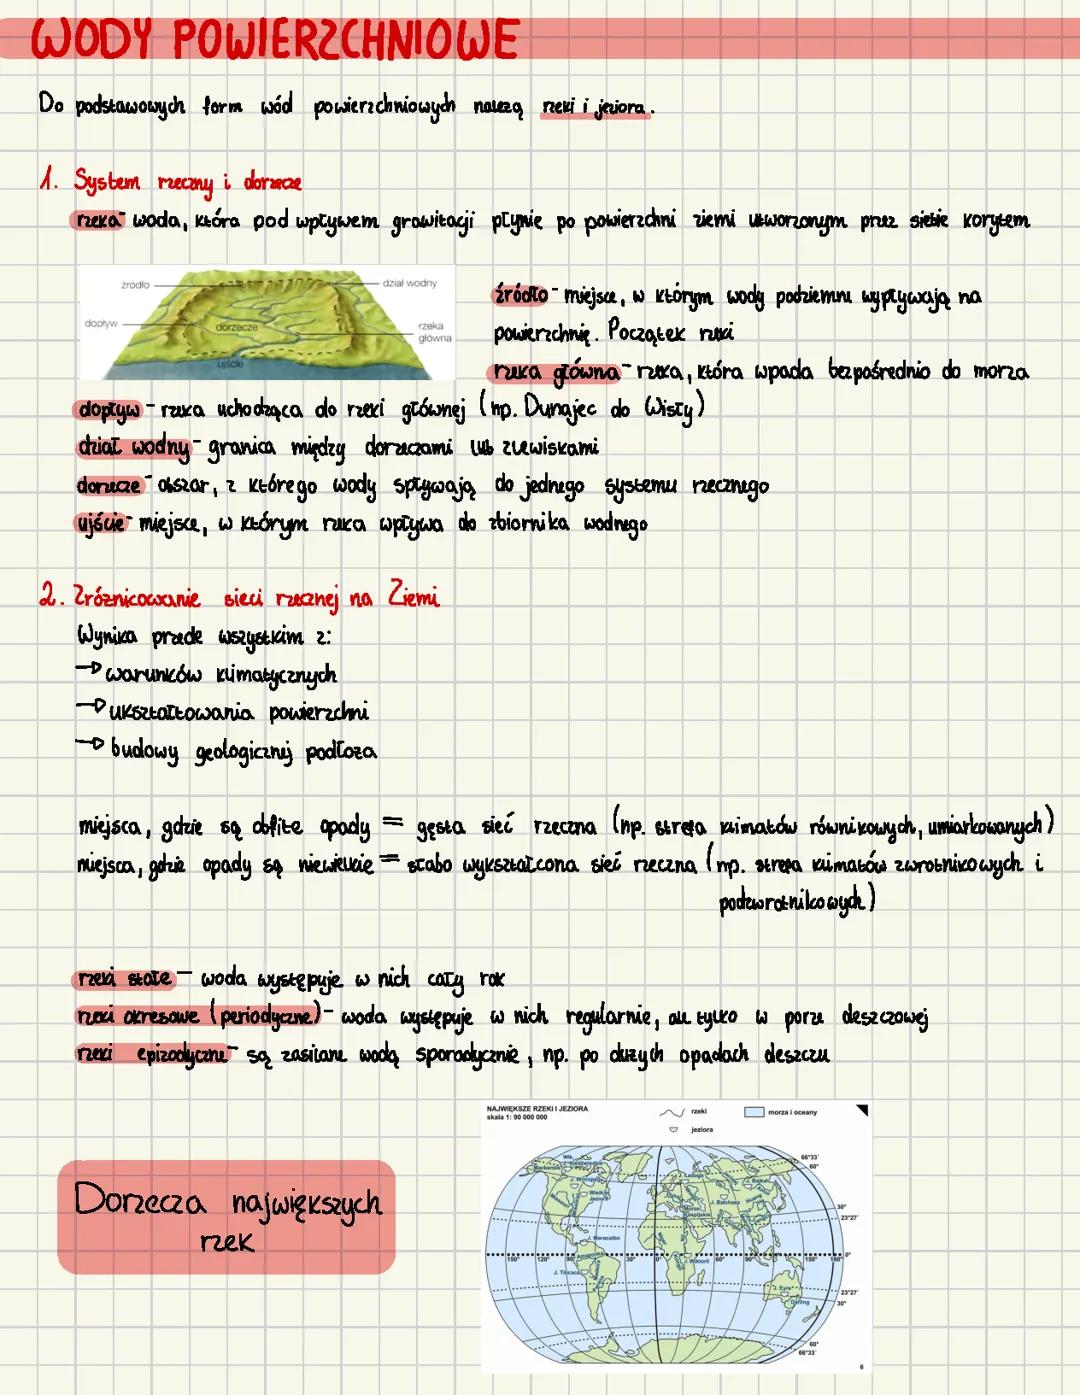 WODY POWIERZCHNIOWE
Do podstawowych form wód powierzchniowych należą rzeki i jeziora.
1. System rzeczny i dorzecze
rzeka - woda, która pod wpływem grawitacji płynie po powierzchni ziemi utworzonym przez siebie korytem
źródło
dział wodny
dopływ
dorzecze
rzeka
główna
ujście
źródło - miejsce, w którym wody podziemne wypływają na
powierzchnię. Początek rzeki
rzeka główna - rzeka, która wpada bezpośrednio do morza
dopływ - rzeka uchodząca do rzeki głównej (np. Dunajec do Wisły)
dział wodny - granica między dorzeczami lub zlewiskami
dorzecze - obszar, z którego wody spływają do jednego systemu rzecznego
ujście - miejsce, w którym rzeka wpływa do zbiornika wodnego
2. Zróżnicowanie sieci rzecznej na Ziemi
Wynika przede wszystkim z:
→ warunków klimatycznych
→ ukształtowania powierzchni
→ budowy geologicznej podłoża
miejsca, gdzie są obfite opady = gęsta sieć rzeczna (np. strefa klimatów równikowych, umiarkowanych)
miejsca, gdzie opady są niewielkie = słabo wykształcona sieć rzeczna (np. strefa klimatów zwrotnikowych i
podzwrotnikowych)
rzeki stałe - woda występuje w nich cały rok
rzeki okresowe (periodyczne) - woda występuje w nich regularnie, ale tylko w porze deszczowej
rzeki epizodyczne - są zasilane wodą sporadycznie, np. po dużych opadach deszczu
NAJWIĘKSZE RZEKI I JEZIORA
skala 1: 90 000 000
rzeki
morza i oceany
jeziora
Dorzecza największych
rzek
66°33'
60°
30°
23°27'
J. Maracaibo
Amazonka
J. Wiktorii
J. Titicaca
150° 120° 90° 30° 0° 60° 90° 150° 180° 0°
J. Eyre
Darling
23°27'
30°
60°
66°33'
6